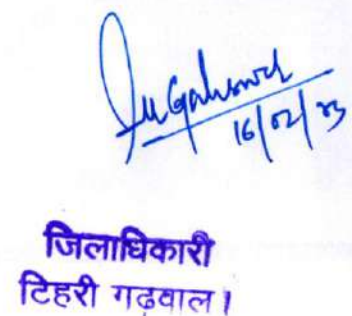 16/02/23
जिलाधिकारी
टिहरी गढ़वाल।